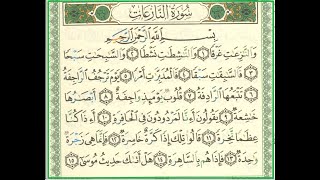 سورة النازعات
بسم الله الرحمن الرحيم
والنزعت غرقا ١ والنشطت نشطا ٢ والسبحت سبحا
٣ فالسبقت سبقا ٤ فالمدبرت أمرا ٥ يوم ترجف الراجفة
٦ تتبعها الرادفة ٧ قلوب يومئذ واجفة ٨ أبصرها
خشعة ٩ يقولون أءنا لمردودون في الحافرة ١٠ أءذا كنا
عظما نخرة ١١ قالوا تلك إذا كرة خاسرة ١٢ فإنما هي زجرة
وحدة ١٣ فإذا هم بالساهرة ١٤ هل أتىك حديث موسى ١٥